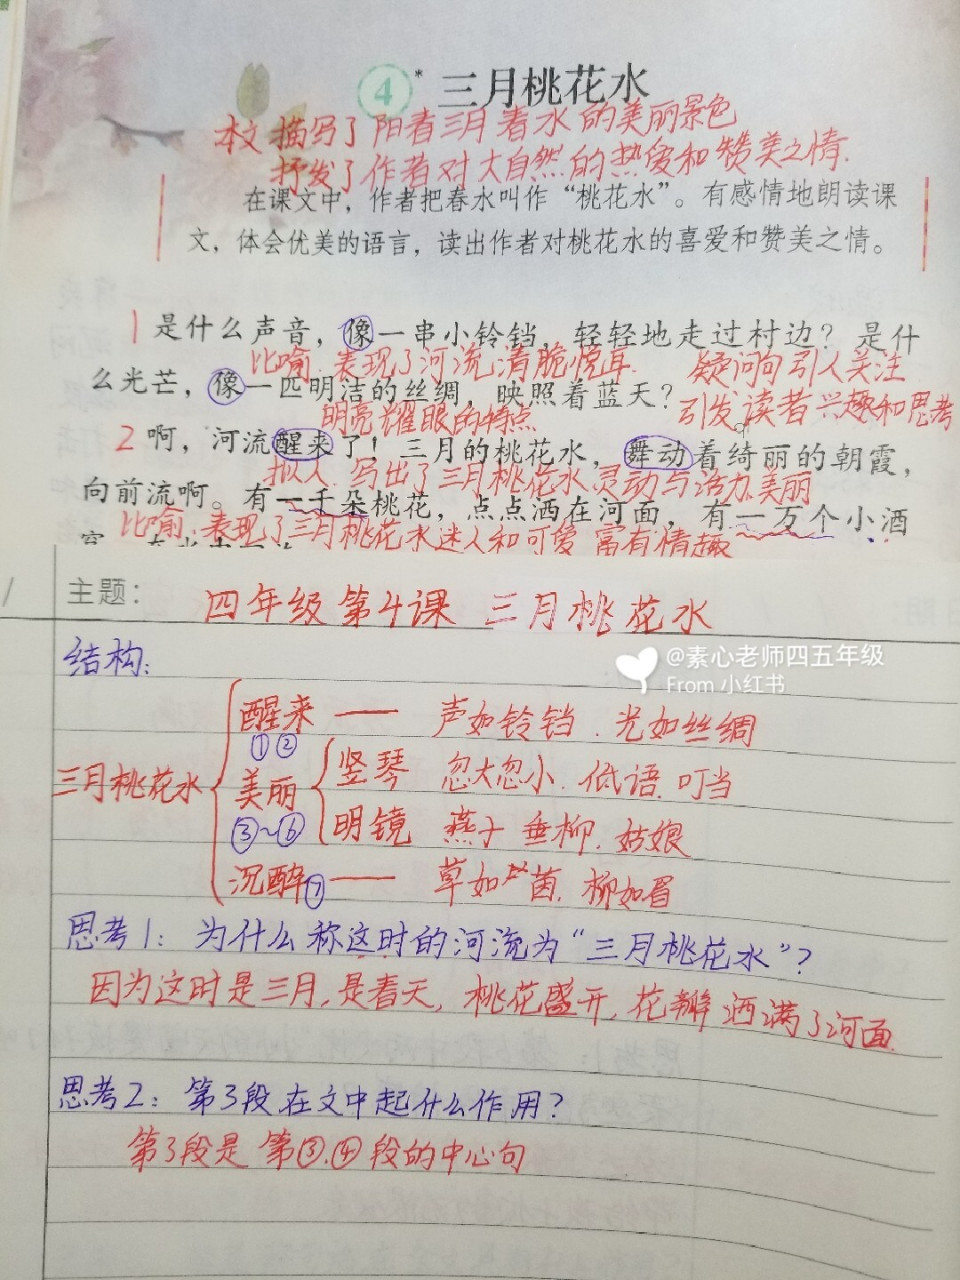 4* 三月桃花水
本文描写了阳春三月春水的美丽景色
抒发了作者对大自然的热爱和赞美之情.
在课文中，作者把春水叫作“桃花水”。有感情地朗读课
文，体会优美的语言，读出作者对桃花水的喜爱和赞美之情。
1 是什么声音，像一串小铃铛，轻轻地走过村边？是什
比喻.表现了河流清脆悦耳.
疑问句引人关注
么光芒，像一匹明洁的丝绸，映照着蓝天？
明亮耀眼的特点
引发读者兴趣和思考
2 啊，河流醒来了！三月的桃花水，舞动着绮丽的朝霞，
拟人.写出了三月桃花水灵动与活力.美丽
向前流啊。有一千朵桃花，点点洒在河面，有一万个小酒
比喻.表现了三月桃花水迷人和可爱 富有情趣
主题：四年级第4课 三月桃花水
@素心老师四五年级
From 小红书
结构：
三月桃花水
醒来 —— 声如铃铛.光如丝绸
①②
美丽
③~⑥
竖琴 忽大忽小.低语.叮当
明镜 燕子 垂柳.姑娘
沉醉⑦ —— 草如茵.柳如眉
思考1：为什么称这时的河流为“三月桃花水”？
因为这时是三月,是春天,桃花盛开,花瓣洒满了河面.
思考2：第3段在文中起什么作用？
第3段是第③.④段的中心句